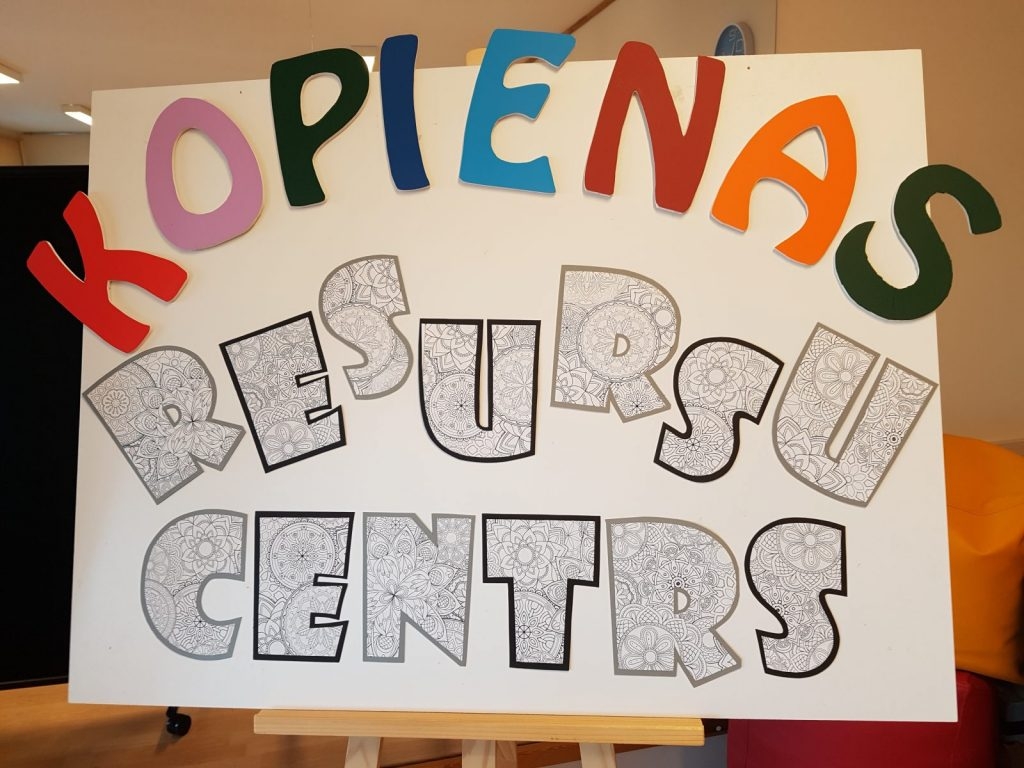 KOPIENAS
RESURSU
CENTRS